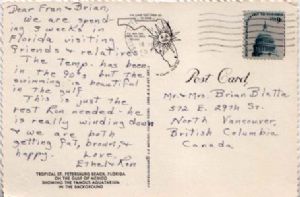 Dear Fran & Brian,
We are spend-
ing 3 weeks in
Florida visiting
friends & relatives.
The Temp. has been
in the 90's but the
swimming is beautiful
in the gulf.
This is just the
rest Ron needed - he
is really winding down
& we are both
getting fat, brown, &
happy. Love,
Ethel & Ron
TROPICAL ST. PETERSBURG BEACH, FLORIDA
ON THE GULF OF MEXICO
SHOWING THE FAMOUS AQUATARIUM
IN THE BACKGROUND
Post Card
Mr. & Mrs. Brian Blatta
572 E. 29th St.
North Vancouver,
British Columbia
Canada